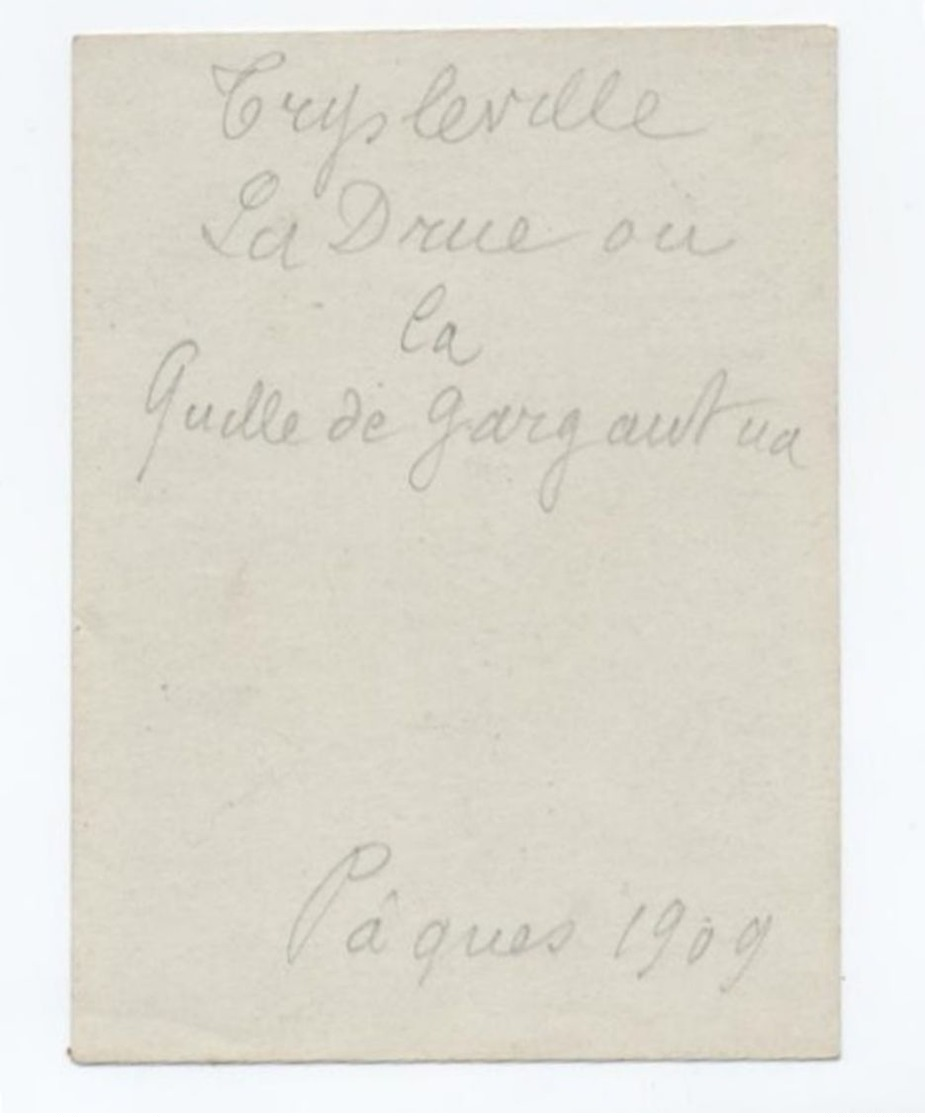 Crysleville
La Drue ou
la
Quille de Gargantua
Pâques 1909